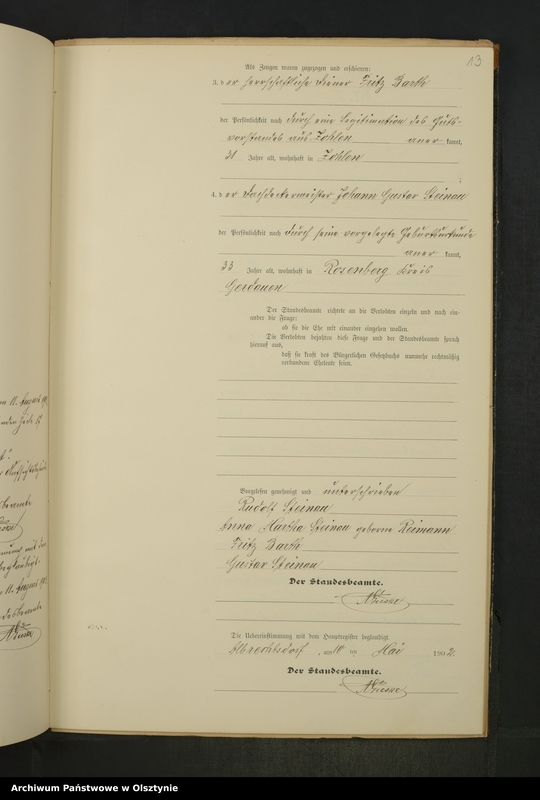 13
Als Zeugen waren zugezogen und erschienen:
3. der herrschaftliche Diener Fritz Barth
der Persönlichkeit nach durch eine Legitimation des Guts-
vorstandes aus Zohlen anerkannt,
31 Jahre alt, wohnhaft in Zohlen
;
4. der Dachdeckermeister Johann Gustav Steinau
der Persönlichkeit nach durch seine vorgelegte Geburtsurkunde
anerkannt,
33 Jahre alt, wohnhaft in Rosenberg Kreis
Gerdauen
Der Standesbeamte richtete an die Verlobten einzeln und nach ein-
ander die Frage:
ob sie die Ehe mit einander eingehen wollen.
Die Verlobten bejahten diese Frage und der Standesbeamte sprach
hierauf aus,
daß sie kraft des Bürgerlichen Gesetzbuchs nunmehr rechtmäßig
verbundene Eheleute seien.
Vorgelesen genehmigt und unterschrieben
Rudolf Steinau
Anna Martha Steinau geborene Reimann
Fritz Barth
Gustav Steinau
Der Standesbeamte.
Die Uebereinstimmung mit dem Hauptregister beglaubigt.
Albrechtsdorf, am 10 ten Mai 1902.
Der Standesbeamte.
Archiwum Państwowe w Olsztynie